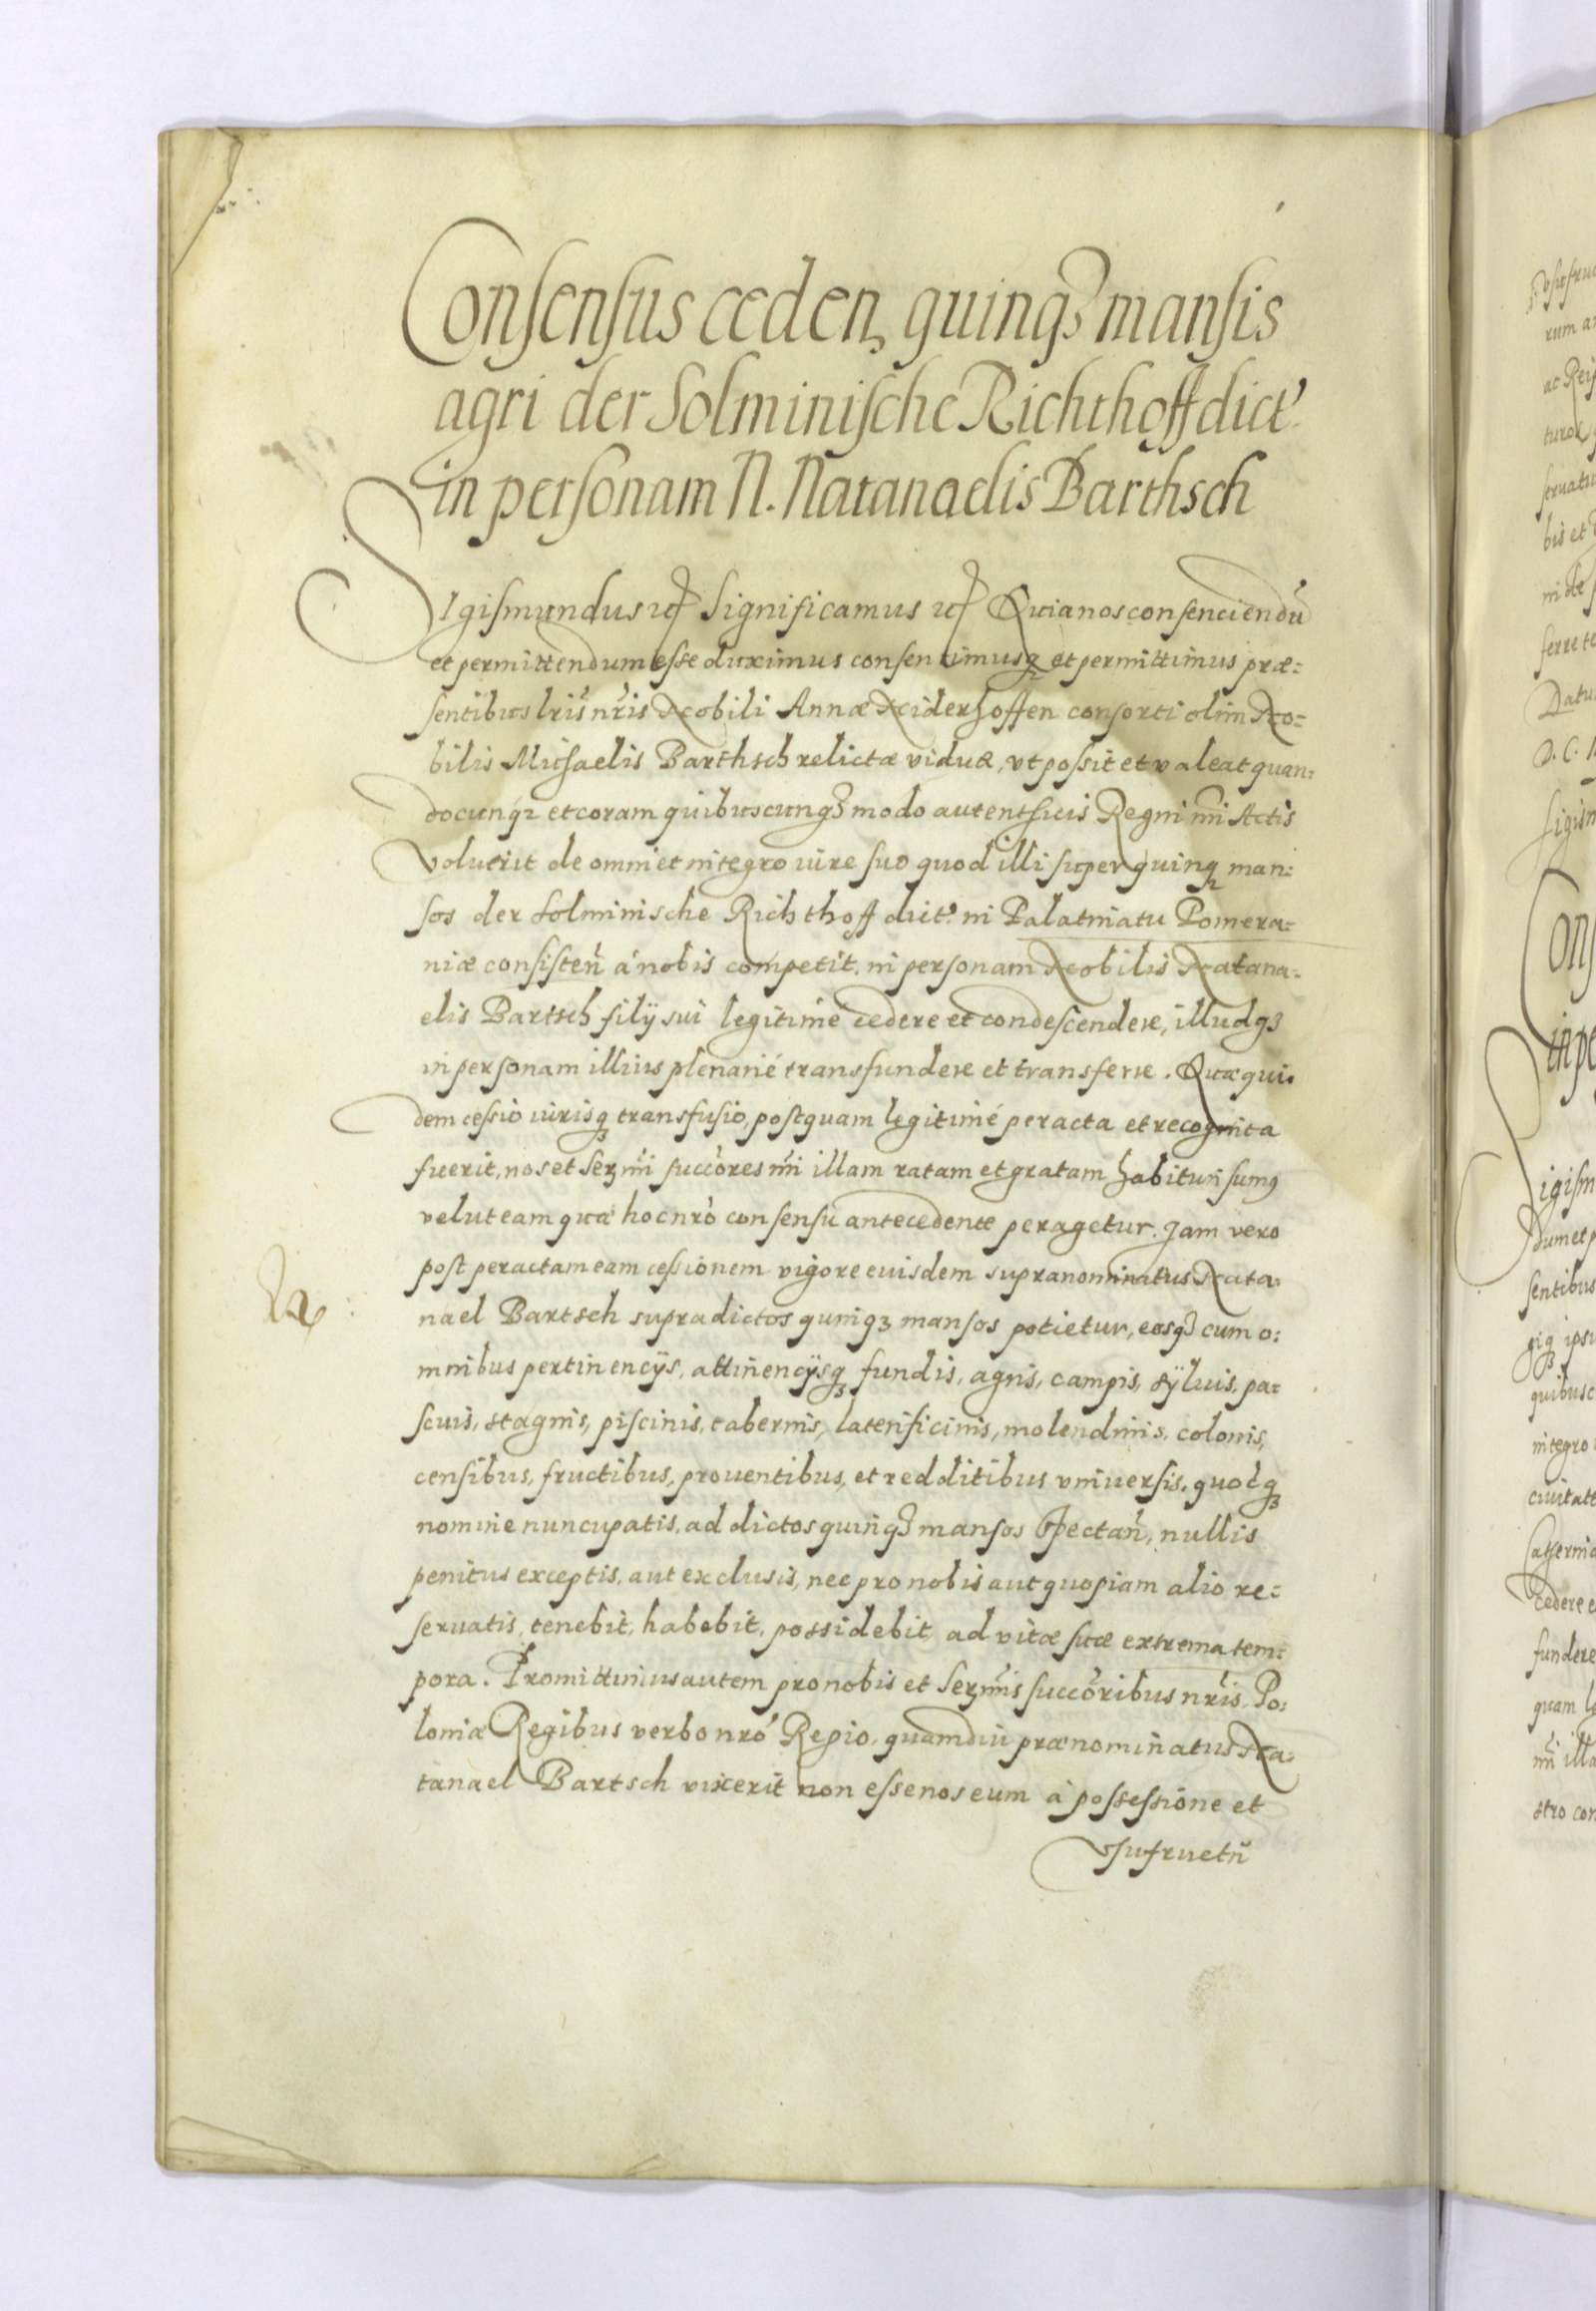 Consensus ceden, quinqꝫ mansis
agri der Solminische Richthoff dict'
in personam N. Natanaelis Barthsch
Sigismundus etc Significamus etc Quia nos consenciendū
et permittendum esse duximus consentimusqꝫ et permittimus præ=
sentibus lris nris Nobili Annæ Niderhoffen consorti olim No=
bilis Michaelis Barthsch relictæ viduæ, vt possit et valeat quan=
docunqꝫ et coram quibuscunqꝫ modo autenthicis Regni nri Actis
Voluerit de omni et integro iure suo quod illi super quinqꝫ man=
sos der Solminische Richthoff dict' in Palatinatu Pomera=
niæ consisten̄ á nobis competit, in personam Nobilis Natana=
elis Bartsch filij sui legitimé cedere et condescendere, illudqꝫ
in personam illius plenarié transfundere et transferre. Quæ qui=
dem cessio iurisqꝫ transfusio, postquam legitimé peracta et recognita
fuerit, nos et Serꝫmi succ̄ores nri illam ratam et gratam habituri sumꝰ
velut eam quæ hoc nrō consensu antecedente peragetur. Jam vero
post peractam eam cessionem vigore euisdem supranominatus Nata=
nael Bartsch supradictos quinqꝫ mansos potietur, eosqꝫ cum o=
mnibus pertinencijs, attinencijsqꝫ fundis, agris, campis, syluis, pa=
scuis, stagnis, piscinis, tabernis, laterificinis, molendinis, colonis,
censibus, fructibus, prouentibus, et redditibus vniuersis, quocqꝫ
nomine nuncupatis, ad dictos quinqꝫ mansos spectan̄, nullis
penitus exceptis, aut exclusis, nec pro nobis aut quopiam alio re=
seruatis, tenebit, habebit, possidebit ad vitæ suæ extrema tem=
pora. Promittimus autem pro nobis et Serꝫmis succ̄oribus nris Po=
loniæ Regibus verbo nrō Regio, quamdiu prænominatus Na=
tanael Bartsch vixerit non esse nos eum á possessione et
Vsufructū